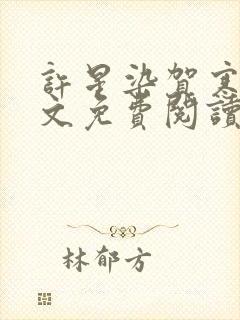 許星染賀寒
文免費閱讀
林郁方